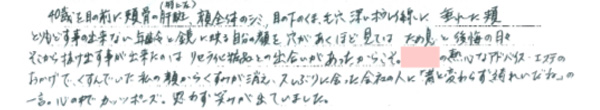 40歳を目の前に頬骨の肝斑、顔全体のシミ、目の下のくま、毛穴、深いほうれい線に、垂れた頬
どうする事も出来ない年齢と鏡に映る自分の顔を穴があくほど見ている ため息と後悔の日々
そこから抜け出す事が出来たのは リセラ化粧品との出合いがあったからこそ。 の熱心なアドバイス・エステの
おかげで、くすんでいた私の顔からくすみが消え、久しぶりに会った会社の人に「昔と変わらず綺れいだね」の
一言。心の中でガッツポーズ。思わず笑みが出ていました。